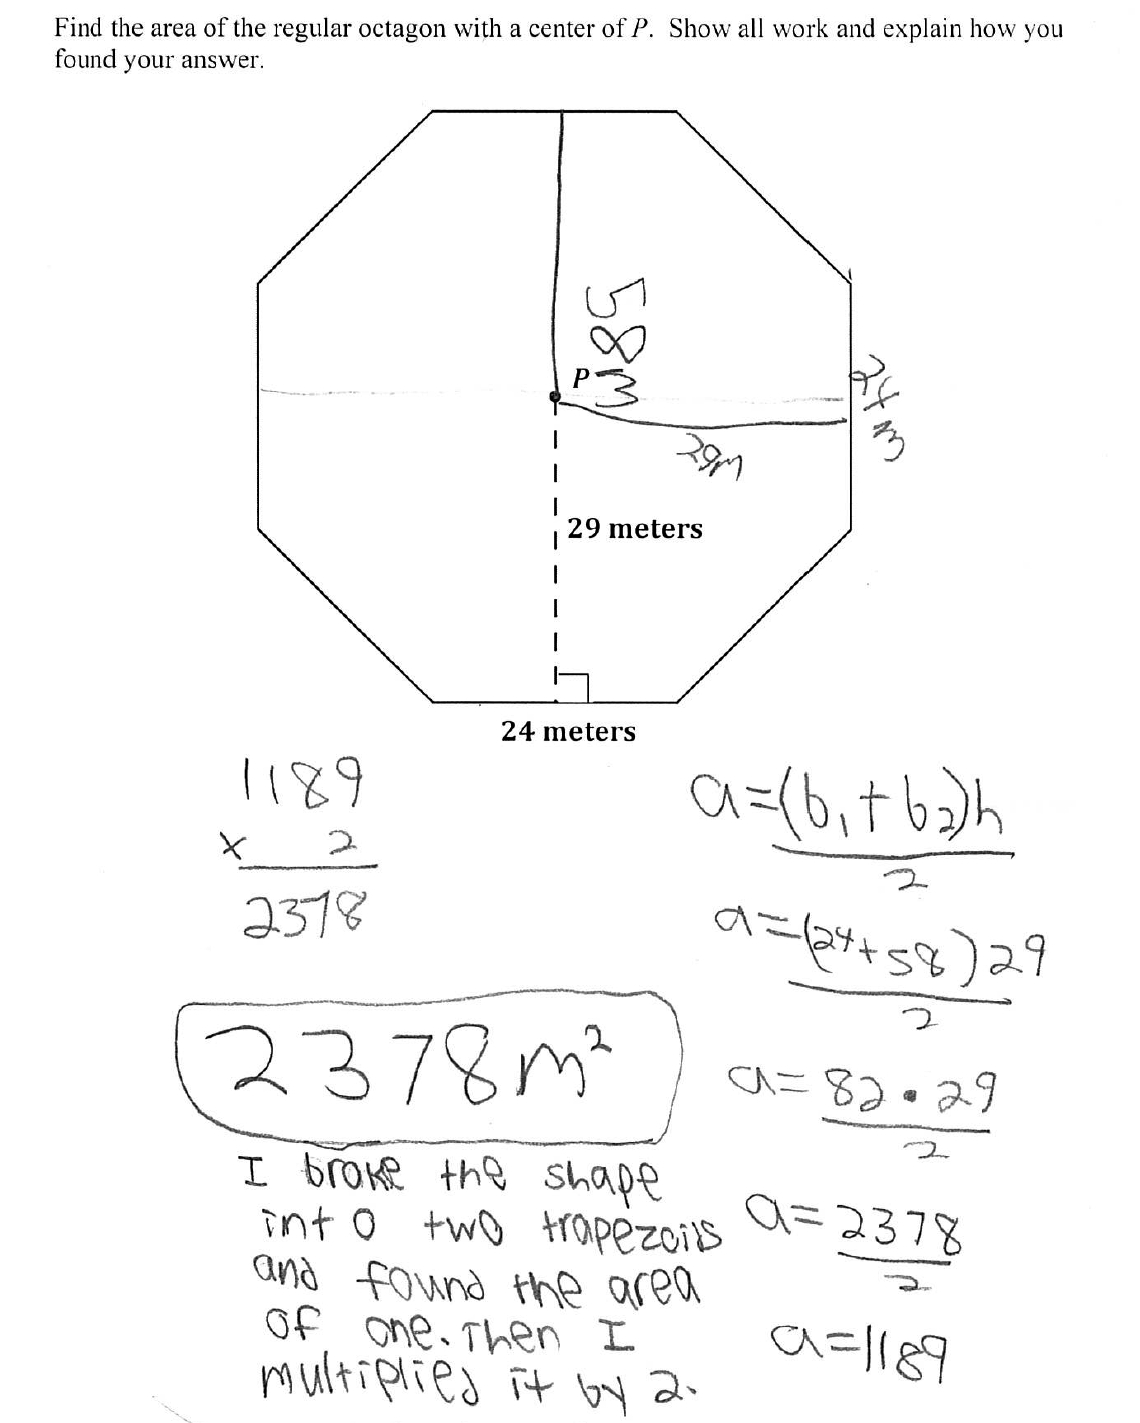 Find the area of the regular octagon with a center of P. Show all work and explain how you
found your answer.
58m
P
24m
29m
29 meters
24 meters
1189
x 2
2378
2378m²
I broke the shape
into two trapezoids
and found the area
of one. Then I
multiplied it by 2.
a=(b₁+b₂)h
2
a=(24+58)29
2
a=82•29
2
a=2378
2
a=1189